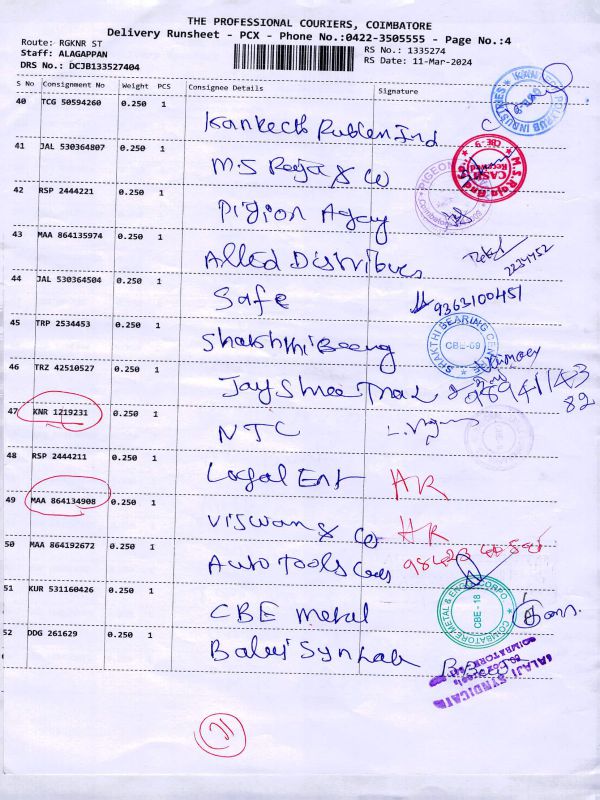 THE PROFESSIONAL COURIERS, COIMBATORE
Delivery Runsheet - PCX - Phone No.:0422-3505555 - Page No.:4
Route: RGKNR ST
RS No.: 1335274
Staff: ALAGAPPAN
RS Date: 11-Mar-2024
DRS No.: DCJB133527404
S No Consignment No Weight PCS Consignee Details Signature
40 TCG 50594260 0.250 1
41 JAL 530364807 0.250 1
M.S Raja & Co
42 RSP 2444221 0.250 1
Pigion Agay
43 MAA 864135974 0.250 1
Allied Distributers
2234452
44 JAL 530364504 0.250 1
Safe 9363100451
45 TRP 2534453 0.250 1
SHAKTHI BEARING CENT
CBE-09
46 TRZ 42510527 0.250 1
Jay Shree Trac
9894114382
47 KNR 1219231 0.250 1
NTC
48 RSP 2444211 0.250 1
Logal Ent HR
49 MAA 864134908 0.250 1
Viswan & Co HR
50 MAA 864192672 0.250 1
Auto Tools
51 KUR 531160426 0.250 1
CBE Metal
COIMBATORE METAL & ENGG CORPO
CBE - 18
52 DDG 261629 0.250 1
BALAJI SYNDICATE
COIMBATORE